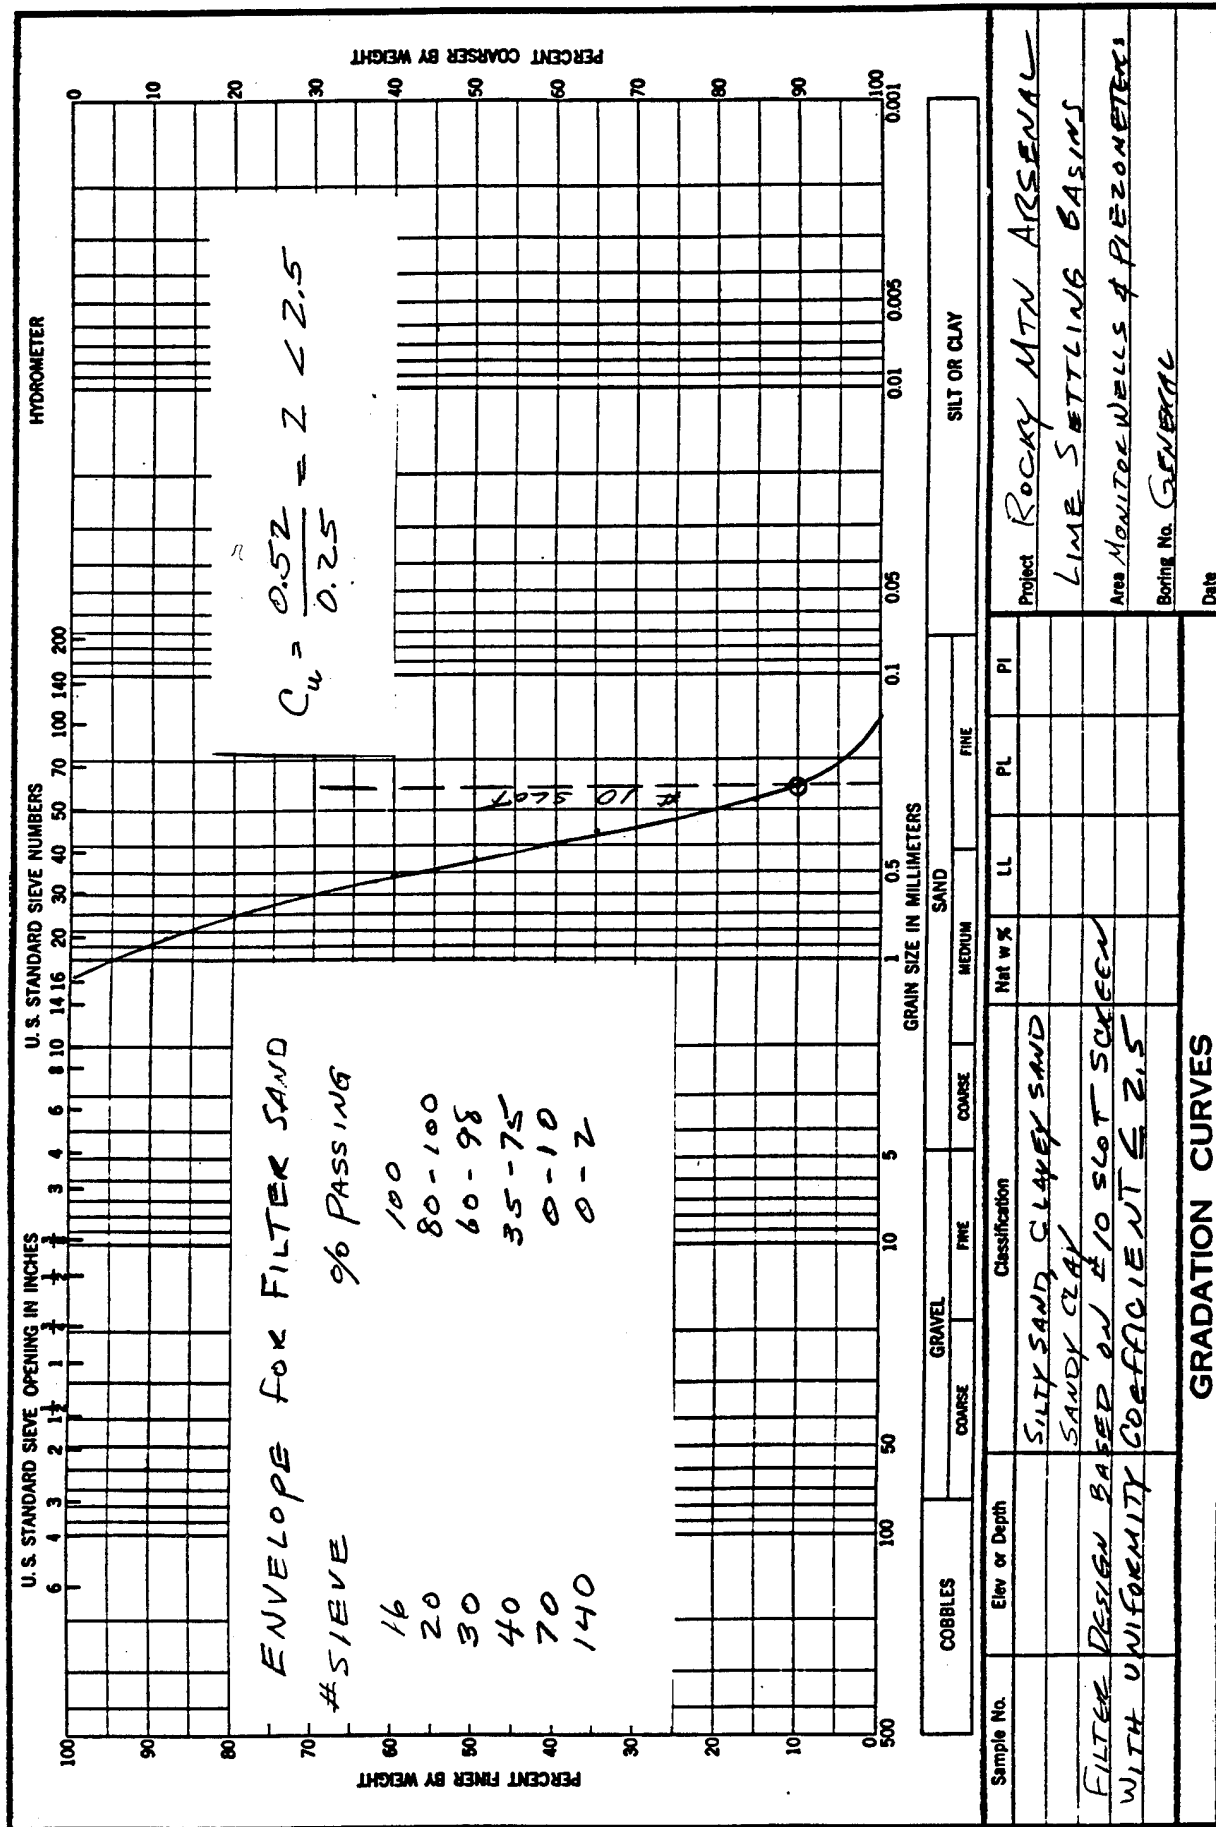 U. S. STANDARD SIEVE OPENING IN INCHES
U. S. STANDARD SIEVE NUMBERS
HYDROMETER
6 4 3 2 1½ 1 ¾ ½ ⅜ 3 4 6 8 10 14 16 20 30 40 50 70 100 140 200
PERCENT FINER BY WEIGHT
100
90
80
70
60
50
40
30
20
10
0
PERCENT COARSER BY WEIGHT
0
10
20
30
40
50
60
70
80
90
100
ENVELOPE FOR FILTER SAND
# SIEVE % PASSING
16 100
20 80 - 100
30 60 - 98
40 35 - 75
70 0 - 10
140 0 - 2
# 10 SLOT
Cu = 0.52 / 0.25 = 2 < 2.5
500 100 50 10 5 1 0.5 0.1 0.05 0.01 0.005 0.001
GRAIN SIZE IN MILLIMETERS
COBBLES GRAVEL SAND SILT OR CLAY
COARSE FINE COARSE MEDIUM FINE
Sample No. Elev or Depth Classification Nat w % LL PL PI
SILTY SAND, CLAYEY SAND
SANDY CLAY
FILTER DESIGN BASED ON #10 SLOT SCREEN
WITH UNIFORMITY COEFFICIENT ≤ 2.5
Project ROCKY MTN ARSENAL
LIME SETTLING BASINS
Area MONITOR WELLS & PIEZOMETERS
Boring No. GENERAL
Date
GRADATION CURVES